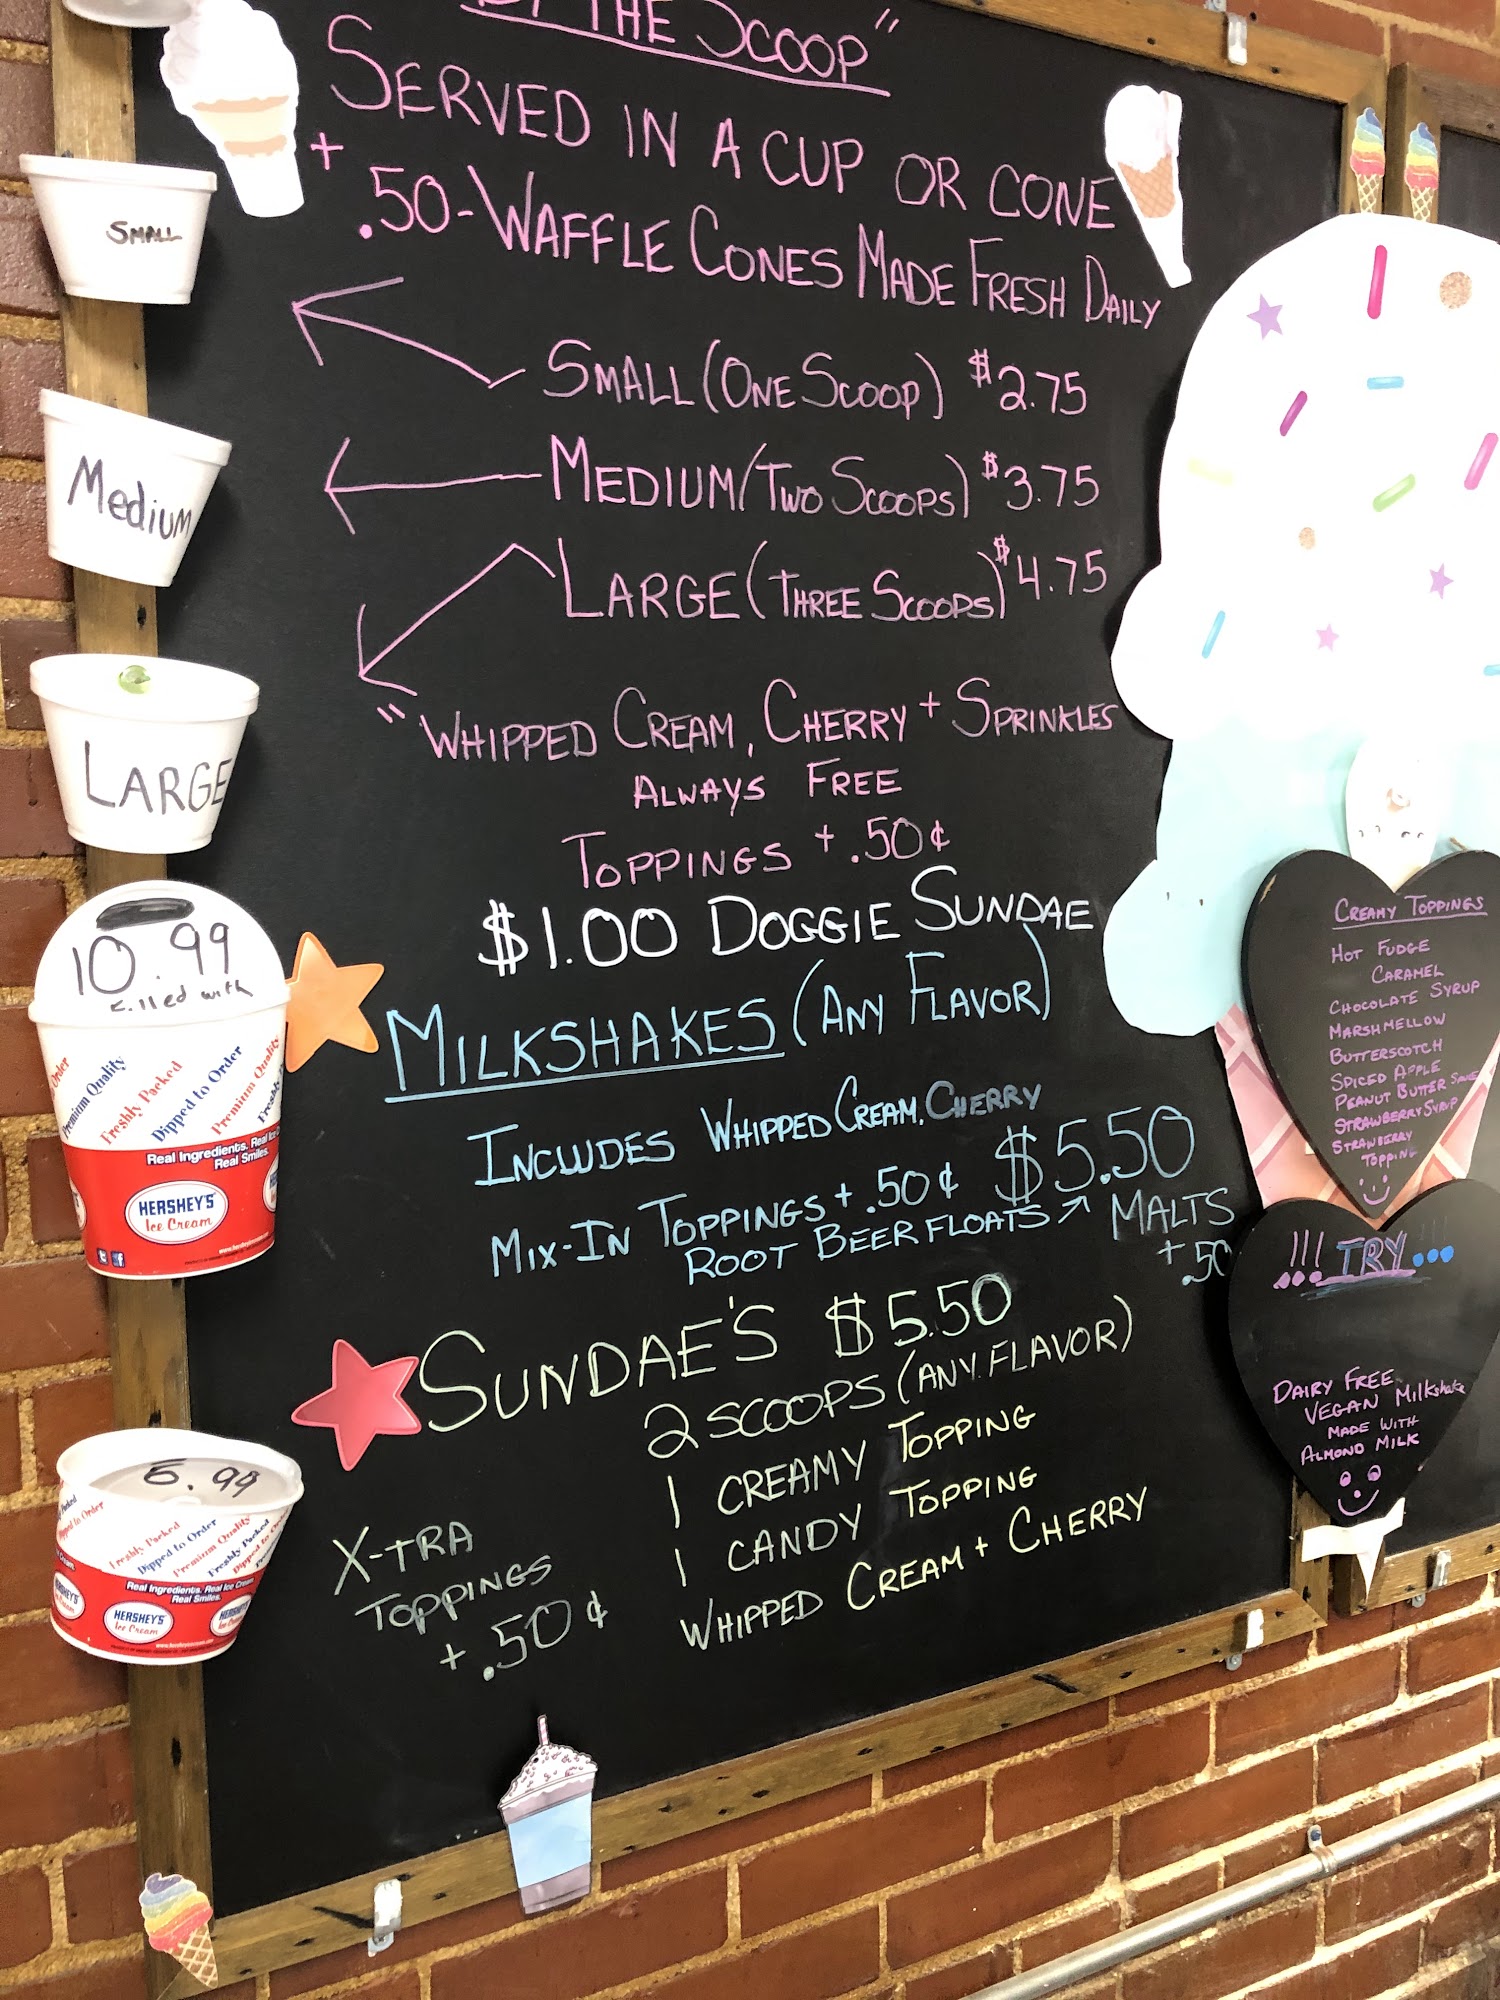 BY THE SCOOP"
SERVED IN A CUP OR CONE
+ .50 - WAFFLE CONES MADE FRESH DAILY
SMALL (ONE SCOOP) $2.75
MEDIUM (TWO SCOOPS) $3.75
LARGE (THREE SCOOPS) $4.75
"WHIPPED CREAM, CHERRY + SPRINKLES
ALWAYS FREE
TOPPINGS + .50¢
$1.00 DOGGIE SUNDAE
MILKSHAKES (ANY FLAVOR)
INCLUDES WHIPPED CREAM, CHERRY
MIX-IN TOPPINGS + .50¢ $5.50
ROOT BEER FLOATS
MALTS
+ .50
SUNDAE'S $5.50
2 SCOOPS (ANY FLAVOR)
1 CREAMY TOPPING
1 CANDY TOPPING
WHIPPED CREAM + CHERRY
X-TRA
TOPPINGS
+ .50¢
SMALL
Medium
LARGE
10.99
filled with
Order
Premium Quality
Freshly Packed
Dipped to Order
Premium Quality
Real Ingredients. Real Ice
Real Smiles.
HERSHEY'S
Ice Cream
6.99
Freshly Packed
Dipped to Order
Premium Quality
Freshly Packed
Real Ingredients. Real Ice Cream
Real Smiles.
HERSHEY'S
Ice Cream
CREAMY TOPPINGS
HOT FUDGE
CARAMEL
CHOCOLATE SYRUP
MARSHMELLOW
BUTTERSCOTCH
SPICED APPLE
PEANUT BUTTER SAUCE
STRAWBERRY SYRUP
STRAWBERRY
TOPPING
!!! TRY !!!
DAIRY FREE
VEGAN Milkshake
MADE WITH
ALMOND MILK